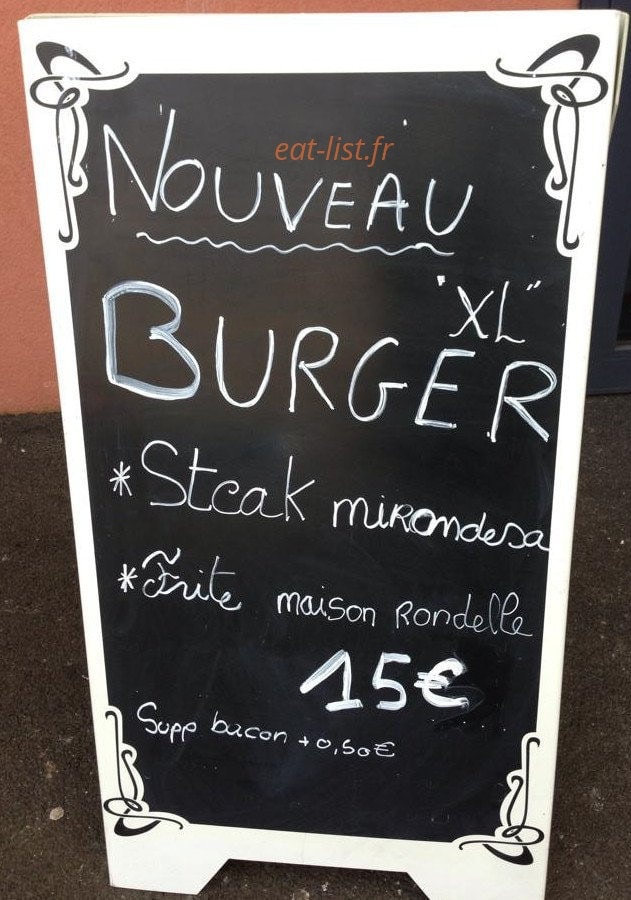 eat-list.fr
NOUVEAU
"XL"
BURGER
* Steak mirandesa
* Frite maison Rondelle
15€
Supp bacon + 0,50€